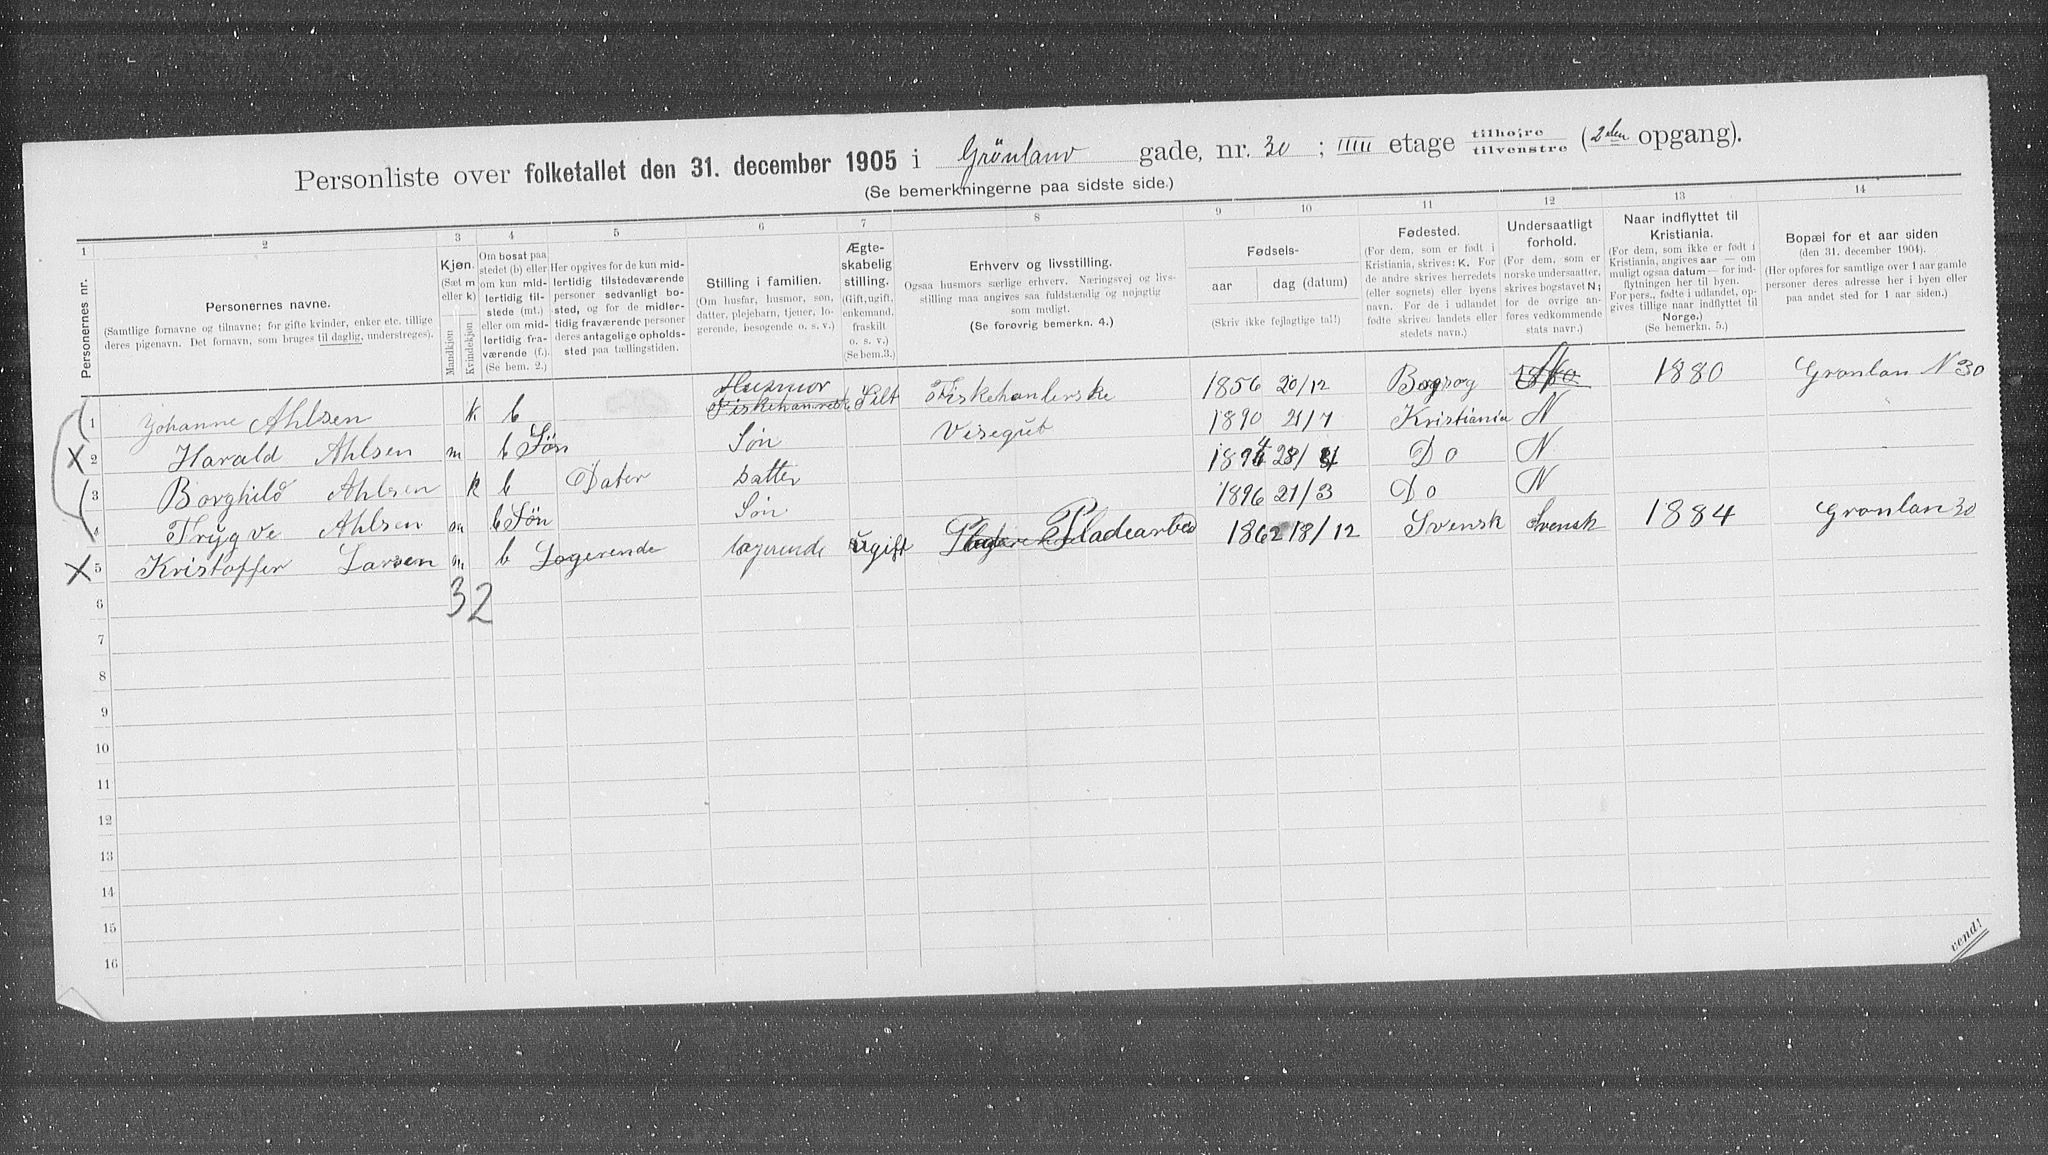 Personliste over folketallet den 31. december 1905 i Grönland gade, nr. 30 ; IIIII etage tilhøire tilvenstre (2den opgang).
(Se bemerkningerne paa sidste side.)
1 2 3 4 5 6 7 8 9 10 11 12 13 14
Personernes nr.
Personernes navne.
(Samtlige fornavne og tilnavne; for gifte kvinder, enker etc. tillige
deres pigenavn. Det fornavn, som bruges til daglig, understreges).
Kjøn.
(Sæt m
eller k)
Mandkjøn
Kvindekjøn
Om bosat paa
stedet (b) eller
om kun mid-
lertidig til-
stede (mt.)
eller om mid-
lertidig fra-
værende (f.).
(Se bem. 2.)
Her opgives for de kun mid-
lertidig tilstedeværende
personer sedvanligt bo-
sted, og for de midler-
tidig fraværende personer
deres antagelige opholds-
sted paa tællingstiden.
Stilling i familien.
(Om husfar, husmor, søn,
datter, plejebarn, tjener, lo-
gerende, besøgende o. s. v.)
Ægte-
skabelig
stilling.
(Gift, ugift,
enkemand,
fraskilt
o. s. v.)
(Se bem. 3.)
Erhverv og livsstilling.
Ogsaa husmors særlige erhverv. Næringsvej og livs-
stilling maa angives saa fuldstændig og nøjagtig
som muligt.
(Se forøvrig bemerkn. 4.)
Fødsels-
aar dag (datum)
(Skriv ikke fejlagtige tal!)
Fødested.
(For dem, som er født i
Kristiania, skrives: K. For
de andre skrives herredets
(eller sognets) eller byens
navn. For de i udlandet
fødte skrives landets eller
stedets navn.)
Undersaatligt
forhold.
(For dem, som er
norske undersaatter,
skrives bogstavet N;
for de øvrige an-
føres vedkommende
stats navn.)
Naar indflyttet til
Kristiania.
(For dem, som ikke er født i
Kristiania, angives aar — om
muligt ogsaa datum — for ind-
flytningen her til byen.
For pers., fødte i udlandet, op-
gives tillige naar indflyttet til
Norge.)
(Se bemerkn. 5.)
Bopæl for et aar siden
(den 31. december 1904).
(Her opføres for samtlige over 1 aar gamle
personer deres adresse her i byen eller
paa andet sted for 1 aar siden.)
1 Johanne Ahlsen k b Husmor Fiskehandlerske 1856 20/12 1880 Grønlan N 30
X 2 Harald Ahlsen m b Søn Søn Visegut 1890 21/7 Kristiania N
3 Borghild Ahlsen k b Dater Datter 1894 28/4 Do N
4 Trygve Ahlsen m b Søn Søn 1896 21/3 Do N
X 5 Kristoffer Larsen m b Logerende Logerende Ugift Pladearbed 1862 18/12 Svensk Svensk 1884 Gronlan 30
32
6
7
8
9
10
11
12
13
14
15
16
vend!